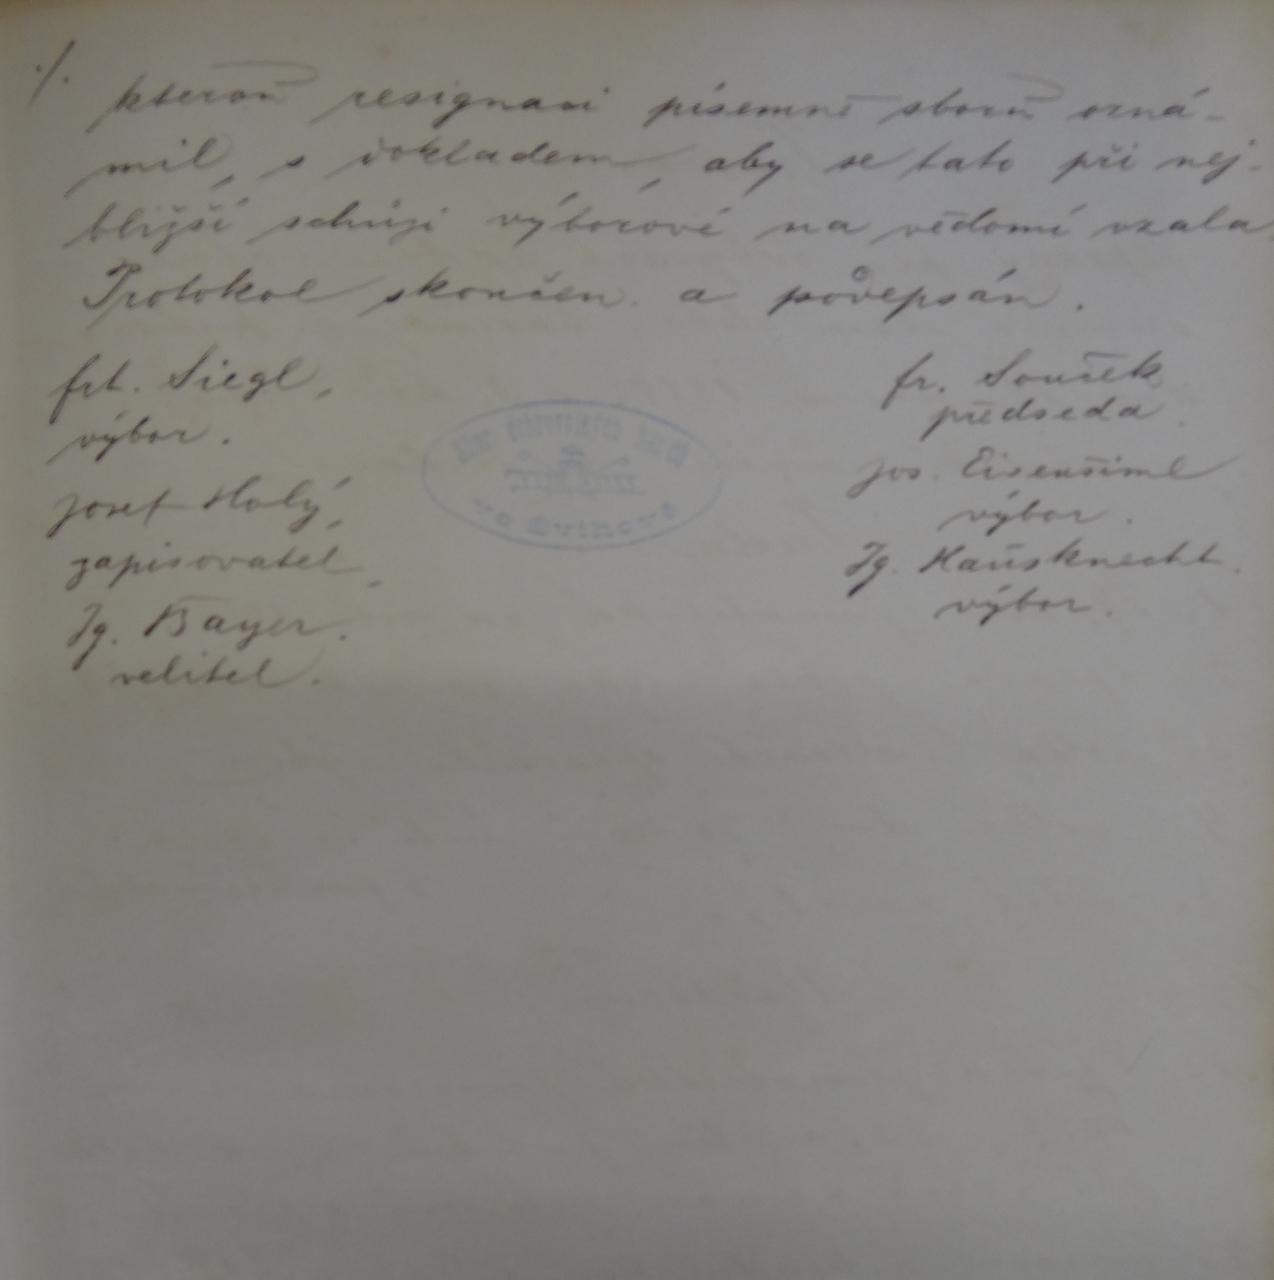 ./.
kterou resignaci písemně sboru ozná-
mil, s dokladem, aby se tato při nej-
bližší schůzi výborové na vědomí vzala.
Protokol skončen a podepsán.
frt. Siegl,
výbor.
Josef Holý,
zapisovatel,
Ig. Bayer.
velitel.
fr. Souček
předseda.
Jos. Eisenšiml
výbor.
Ig. Hausknecht.
výbor.
ve Švihově